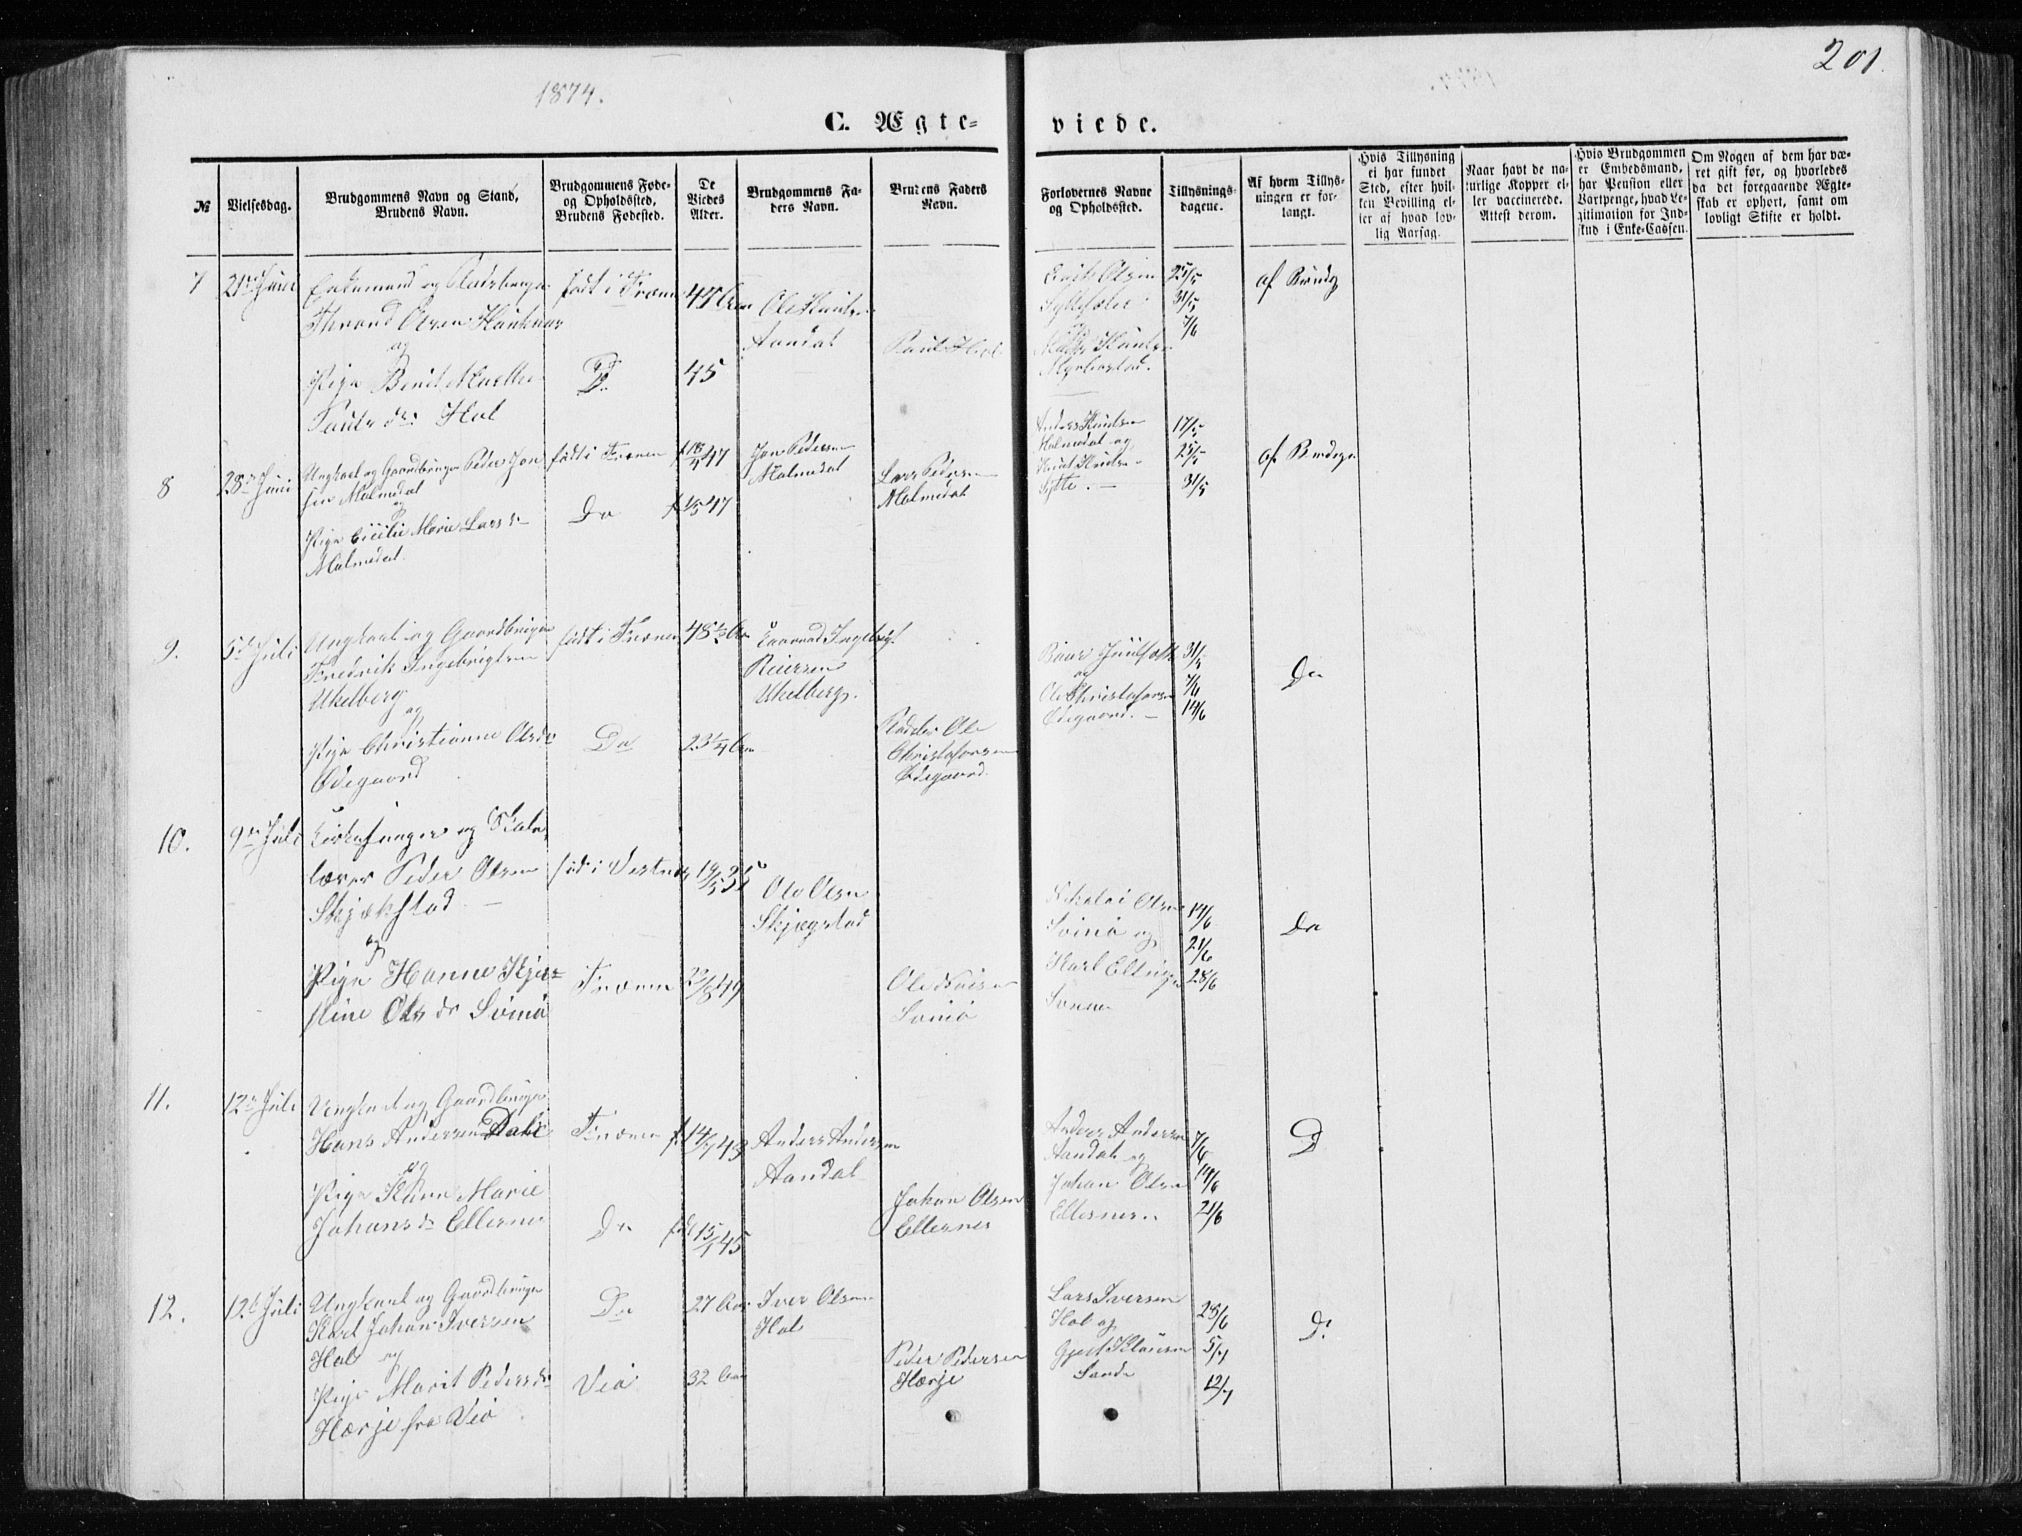 1874.
201.
C. Ægte-
viede.
№
Vielsesdag.
Brudgommens Navn og Stand,
Brudens Navn.
Brudgommens Føde-
og Opholdssted,
Brudens Fødested.
De
Viedes
Alder.
Brudgommens Fa-
ders Navn.
Brudens Faders
Navn.
Forlovernes Navne
og Opholdssted.
Tillysnings-
dagene.
Af hvem Tillys-
ningen er for-
langt.
Hvis Tillysning
ei har fundet
Sted, efter hvil-
ken Bevilling el-
ler af hvad lov-
lig Aarsag.
Naar havt de na-
turlige Kopper el-
ler vaccinerede.
Attest derom.
Hvis Brudgommen
er Embedsmand,
har Pension eller
Vartpenge, hvad Le-
gitimation for Ind-
skud i Enke-Cassen.
Om Nogen af dem har væ-
ret gift før, og hvorledes
da det foregaaende Ægte-
skab er ophørt, samt om
lovligt Skifte er holdt.
7
21de Juni
Enkemand og
Thrond Olsen
og
Pige Berit Marthe
Hol
født i Frænen
Do
45
Ole Knutsen
Aandal
Erik Olsen
Syltesæter
Knutsen
25/5
31/5
7/6
af Brudg
8
28de Juni
Ungkarl og Gaardbruger Peder Jon
sen Malmedal
og
Pige Cicilie Marie Larsd
Malmedal.
født i Frænen
Do
47
47
Jon Pedersen
Malmedal
Lars Pedersen
Malmedal
Anders Knutsen
Malmedal og
Knut Knutsen
Sylte.
17/5
25/5
31/5
af Brudgn
9.
5te Juli
Ungkarl og Gaardbruger
Fredrik Ingebrigtsen
Ukelberg
og
Pige Christianne Olsdr
Ødegaard
født i Frænen
Do
48 1/2 Aar
23 1/4 Aar
Ingebrigt
Reiersen
Ukelberg.
Ole
Christofersen
Ødegaard.
og
Ole Christofersen
Ødegaard.
31/5
7/6
14/6
Do
10.
9de Juli
Kirkesanger og Skole-
lærer Peder Olsen
Skjækstad
og
Pige Hanne Kjer-
stine Olsdr Svinø
født i Vestnes
Frænen
19/5 35
22/8 49
Ole Olsen
Skjegstad
Svinø
Nikolai Olsen
Svinø og
Karl
14/6
21/6
28/6
Do
11.
12te Juli
Ungkarl og Gaardbruger
Hans Andersen Dahle
og
Pige Marie
Johansdr Ellernes
Frænen
Do
14/7 43
15/1 45
Anders Andersen
Aandal
Johan Olsen
Ellernes
Anders Andersen
Aandal og
Johan Olsen
Ellesnes.
7/6
14/6
21/6
D
12.
12te Juli
Ungkarl og Gaardbruger
Karl Johan Iversen
Hol og
Pige Marit Pedersdr
Hærje fra Veø
Do
Veø
27 Aar
32 Aar
Iver Olsen
Hol
Peder Pedersen
Hærje
Lars Iversen
Hol og
Gjert Klausen
Sande
28/6
5/7
12/7
D: